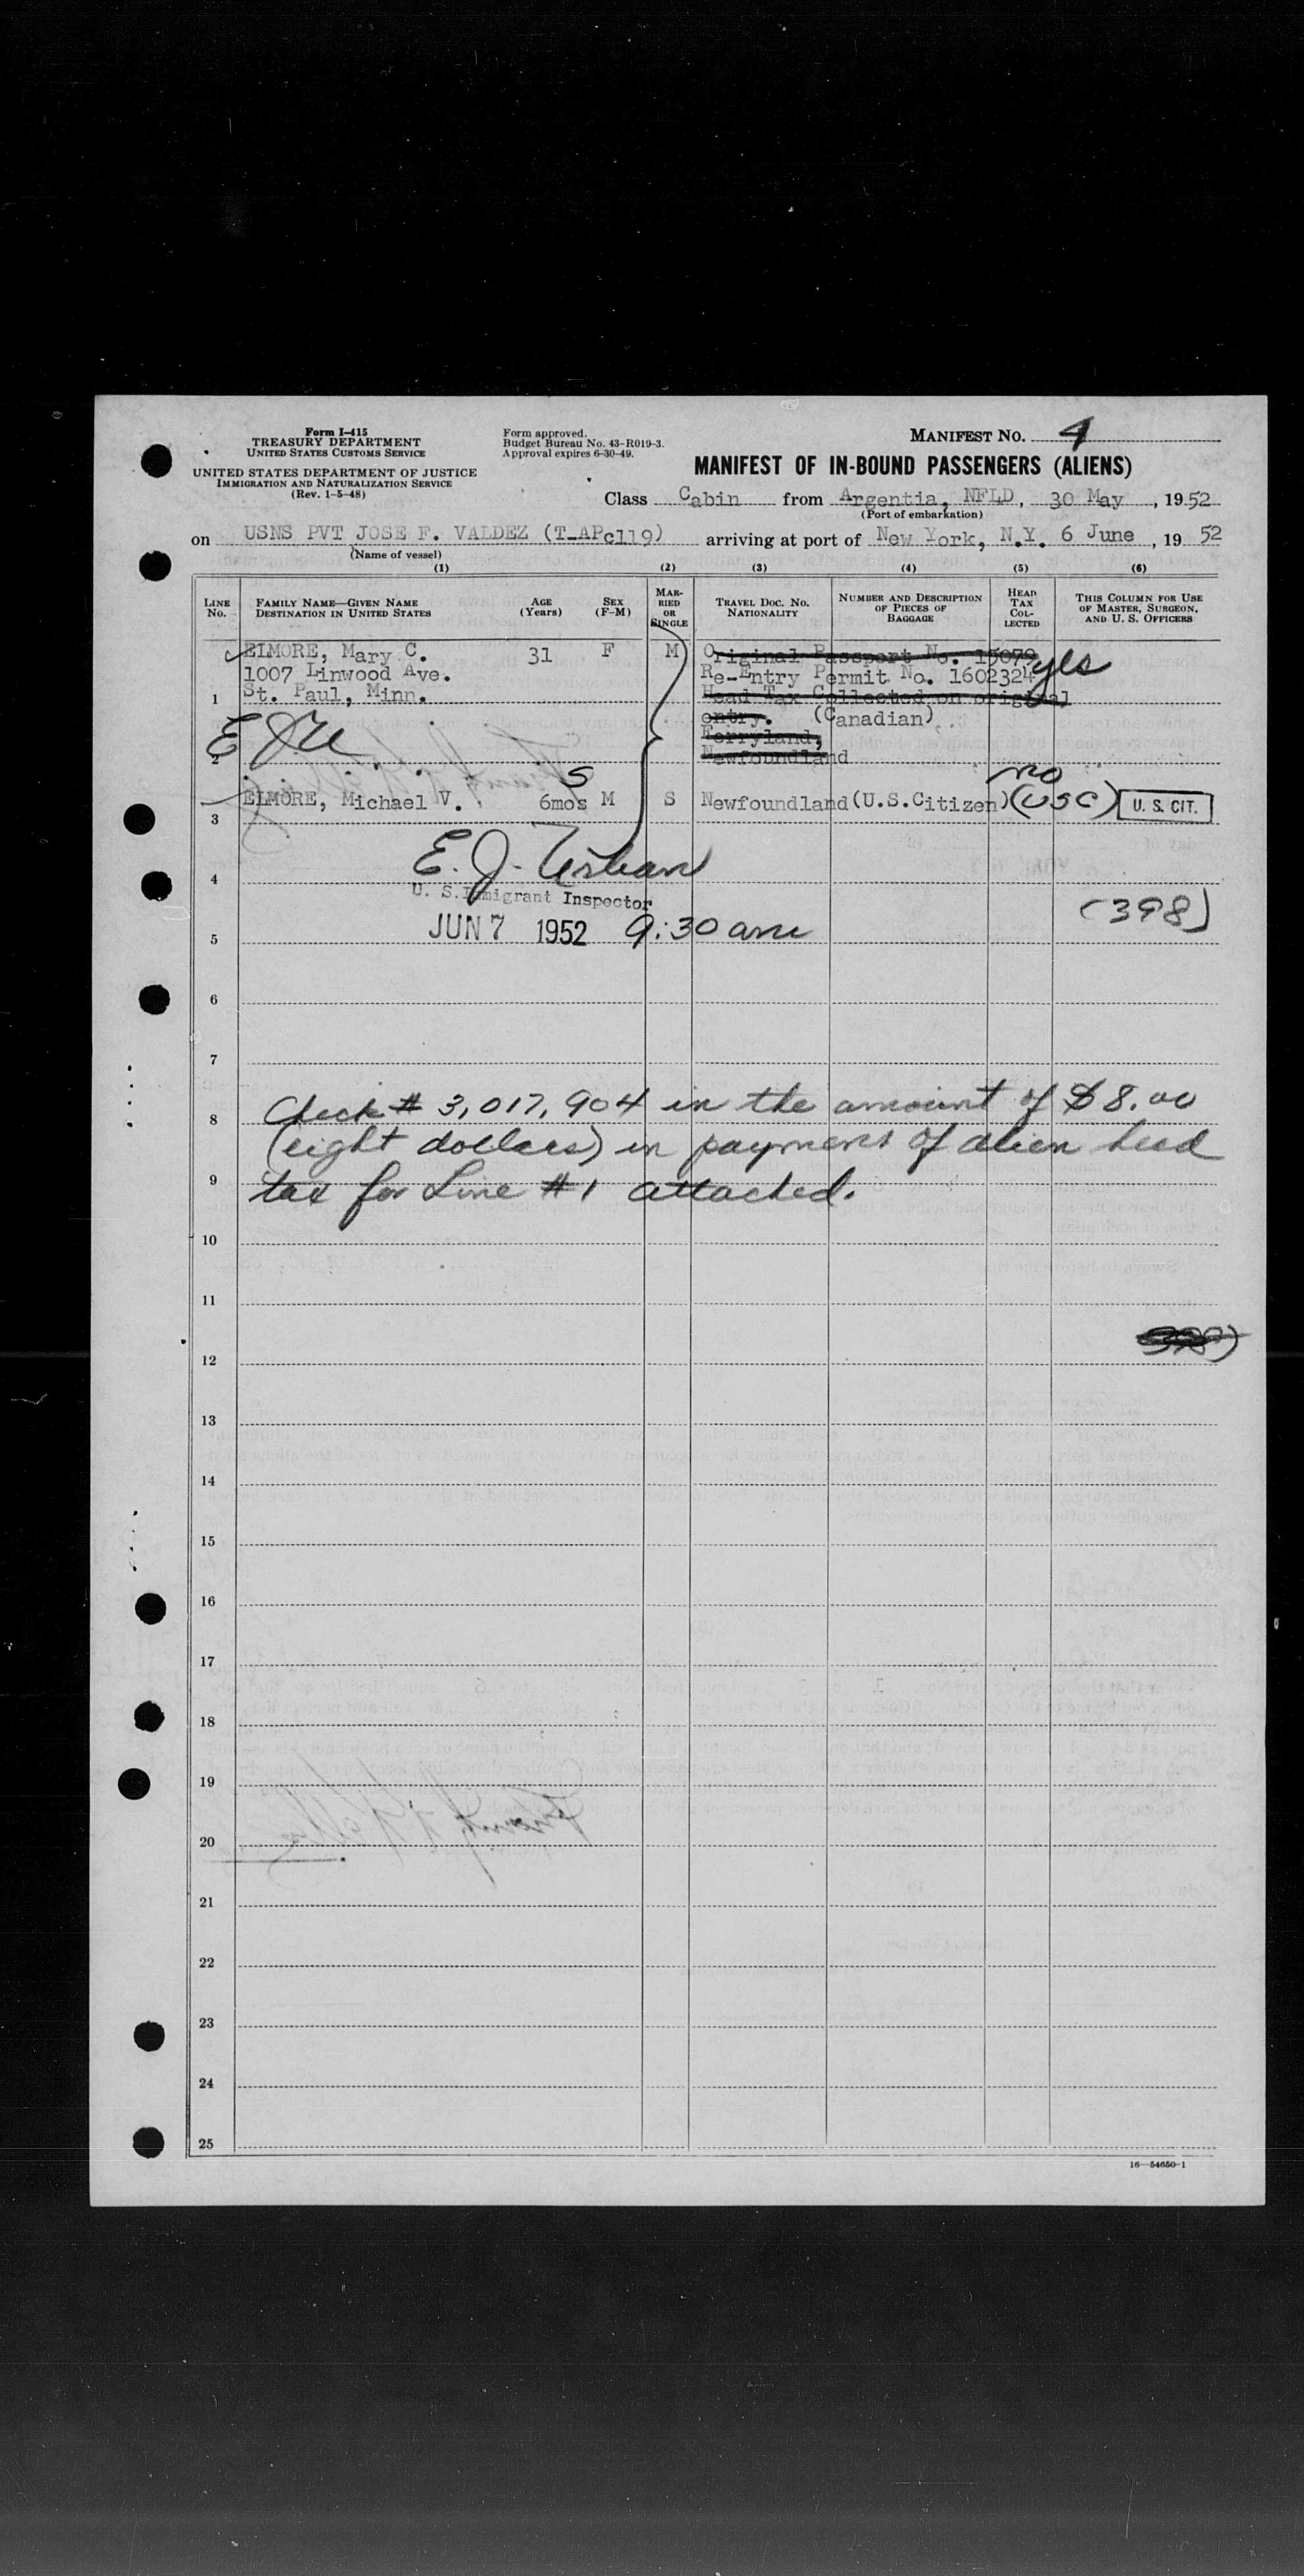 Form I-415
TREASURY DEPARTMENT
UNITED STATES CUSTOMS SERVICE
UNITED STATES DEPARTMENT OF JUSTICE
IMMIGRATION AND NATURALIZATION SERVICE
(Rev. 1-5-48)
Form approved.
Budget Bureau No. 43-R019-3.
Approval expires 6-30-49.
MANIFEST NO. 4
MANIFEST OF IN-BOUND PASSENGERS (ALIENS)
Class Cabin from Argentia, NFLD, 30 May, 1952
(Port of embarkation)
on USNS PVT JOSE F. VALDEZ (T-APc119) arriving at port of New York, N.Y. 6 June, 19 52
(Name of vessel)
(1) (2) (3) (4) (5) (6)
LINE NO.
FAMILY NAME—GIVEN NAME
DESTINATION IN UNITED STATES
AGE (Years)
SEX (F-M)
MARRIED OR SINGLE
TRAVEL DOC. NO. NATIONALITY
NUMBER AND DESCRIPTION OF PIECES OF BAGGAGE
HEAD TAX COLLECTED
THIS COLUMN FOR USE OF MASTER, SURGEON, AND U. S. OFFICERS
ELMORE, Mary C. 31 F M Original Passport No. 15079
1007 Linwood Ave. Re-Entry Permit No. 1602324 yes
1 St. Paul, Minn. Head Tax Collected on original
entry. (Canadian)
EJU Ferryland,
2 Newfoundland
S no
ELMORE, Michael V. 6mos M S Newfoundland(U.S.Citizen) (USC) U. S. CIT.
3
E. J. Urban
4
U. S. Immigrant Inspector
(398)
JUN 7 1952 9:30 am
5
6
7
8 Check # 3,017,904 in the amount of $8.00
(eight dollars) in payment of alien head
9 tax for Line #1 attached.
10
11
398)
12
13
14
15
16
17
18
19
20
21
22
23
24
25
16—54650-1